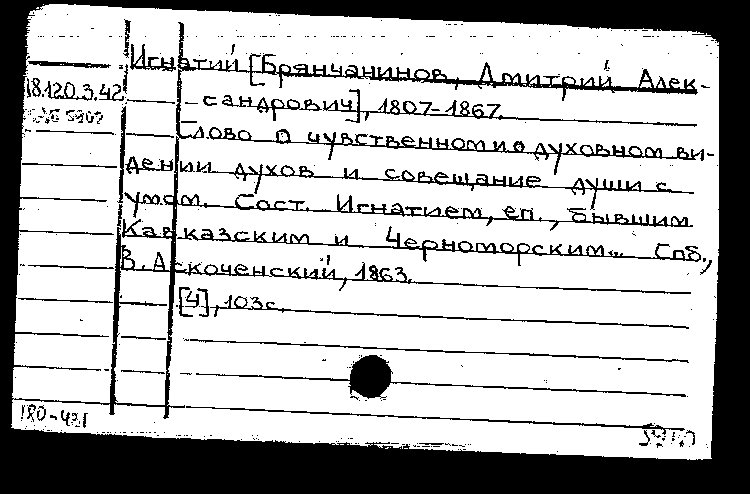 Игнатий [Брянчанинов, Дмитрий Алек-
18.120.3.42
сандрович], 1807-1867.
Слово о чувственном и о духовном ви-
дении духов и совещание души с
умом. Сост. Игнатием, еп., бывшим
Кавказским и Черноморским... Спб.,
В. Аскоченский, 1863.
[4], 103 с.
180-431